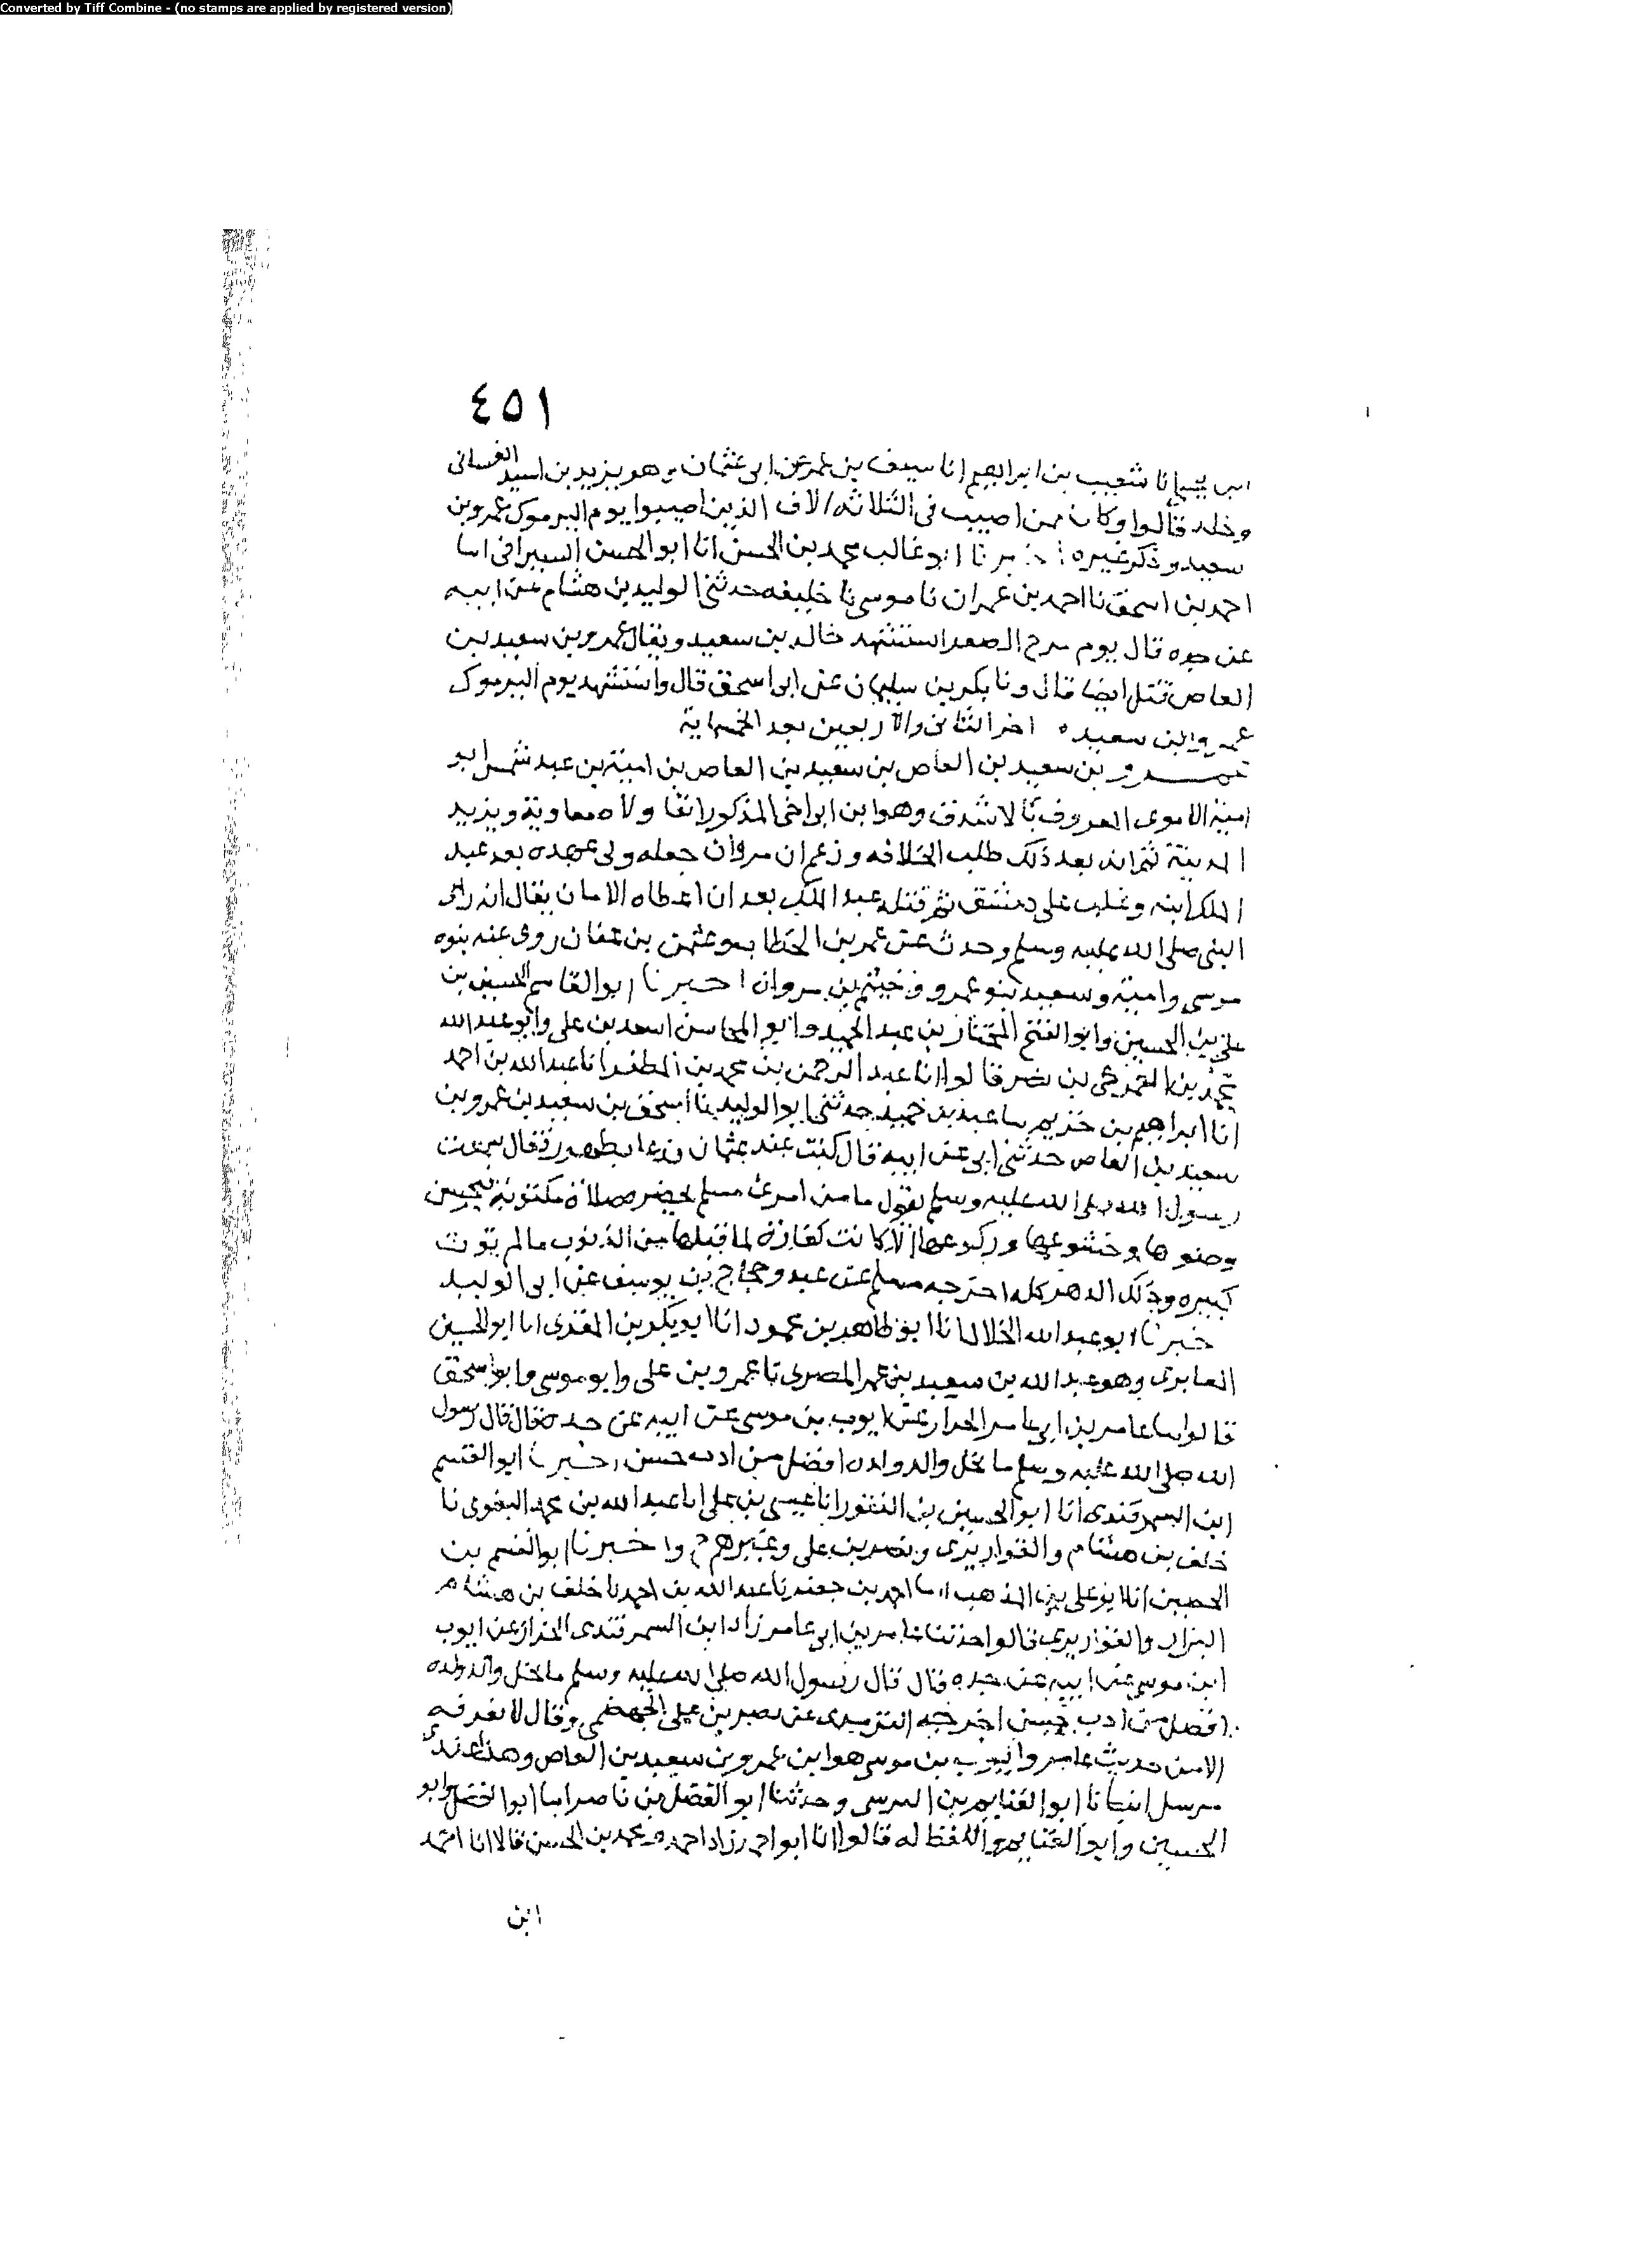 Converted by Tiff Combine - (no stamps are applied by registered version)
٤٥١
ابن يحيى انا شعيب بن ابراهيم انا سيف بن عمر عن ابى عثمان وهو يزيد بن اسيد الغسانى
وخلد قالوا وكان ممن اصيب فى الثلاثه الاف الذين اصيبوا يوم اليرموك عمرو بن
سعيد وذكر غيره اخبرنا ابو غالب محمد بن الحسن انا ابو الحسن السيرافى انا
احمد بن اسحق نا احمد بن عمران نا موسى نا خليفه حدثنى الوليد بن هشام عن ابيه
عن جده قال يوم مرج الصفر استشهد خالد بن سعيد ويقال عمرو بن سعيد بن
العاص قتل ايضا قال ونا بكر بن سليمان عن ابى اسحق قال واستشهد يوم اليرموك
عمرو بن سعيد ه اخر الثانى والاربعين بعد الخمساية
عمرو بن سعيد بن العاص بن سعيد بن العاص بن امية بن عبد شمس ابو
امية الاموى المعروف بالاشدق وهو ابن ابن اخى المذكور انفا ولاه معاوية ويزيد
المدينة ثم انه بعد ذلك طلب الخلافه وزعم ان مروان جعله ولى عهده بعد عبد
الملك ابنه وغلب على دمشق ثم قتله عبد الملك بعد ان اعطاه الامان يقال انه راى
النبى صلى الله عليه وسلم وحدث عن عمر بن الخطاب وعثمن بن عفان روى عنه بنوه
موسى وامية وسعيد بنو عمرو وخيثم بن مروان اخبرنا ابو القاسم الحسين بن
على بن الحسين وابو الفتح المختار بن عبد الحميد وابو المحاسن اسعد بن على وابو عبد الله
بن نصر قالوا انا عبد الرحمن بن محمد بن المظفر انا عبد الله بن احمد
انا ابراهيم بن خزيم نا عبد بن حميد حدثنى ابو الوليد نا اسحق بن سعيد بن عمرو بن
سعيد بن العاص حدثنى ابى عن ابيه قال كنت عند عثمان فدعا بطهور فقال سمعت
رسول الله صلى الله عليه وسلم يقول ما من امرئ مسلم تحضره صلاة مكتوبة فيحسن
وضوها وخشوعها وركوعها الا كانت كفارة لما قبلها من الذنوب ما لم توت
كبيره وذلك الدهر كله اخرجه مسلم عن عبد وحجاج بن يوسف عن ابى الوليد
اخبرنا ابو عبد الله الخلال انا ابو طاهر بن محمود انا ابو بكر بن المقرى انا ابو الحسين
وهو عبد الله بن سعيد بن عمر المصرى نا عمرو بن على وابو موسى وابو اسحق
قالوا نا عامر بن ابى عامر الخزاز عن ايوب بن موسى عن ابيه عن جده قال قال رسول
الله صلى الله عليه وسلم ما نحل والد ولده افضل من ادب حسن اخبرنا ابو القسم
ابن السمرقندى انا ابو الحسين بن النقور انا عيسى بن على انا عبد الله بن محمد البغوى نا
خلف بن هشام والقواريرى ونصر بن على وغيرهم ح واخبرنا ابو القسم بن
الحصين انا ابو على بن المذهب انا احمد بن جعفر نا عبد الله بن احمد نا خلف بن هشام
البزار والقواريرى قالوا حدثنا عامر بن ابى عامر زاد ابن السمرقندى الخزاز عن ايوب
ابن موسى عن ابيه عن جده قال قال رسول الله صلى الله عليه وسلم ما نحل والد ولده
افضل من ادب حسن اخرجه الترمذى عن نصر بن على الجهضمى وقال لا نعرفه
الا من حديث عامر وايوب بن موسى هو ابن عمرو بن سعيد بن العاص وهذا عندى
مرسل انبانا ابو الغنايم بن النرسى وحدثنا ابو الفضل بن ناصر انا ابو الفضل وابو
الحسين وابو الغنايم واللفظ له قالوا انا ابو احمد زاد احمد ومحمد بن الحسن قالا انا احمد
ابن